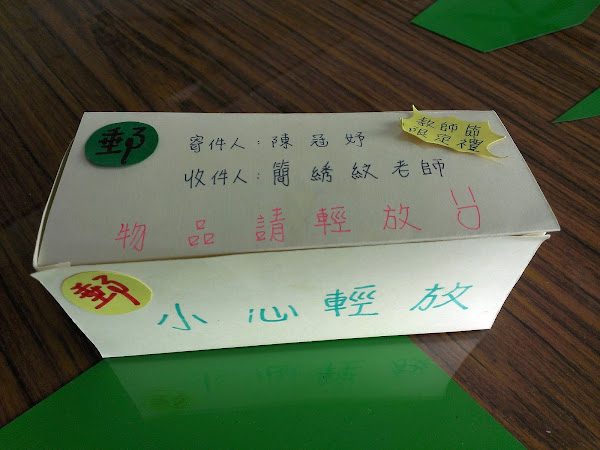 郵
寄件人:陳冠妤
教師節
限定禮
收件人:簡綉紋老師
物品請輕放
郵
小心輕放